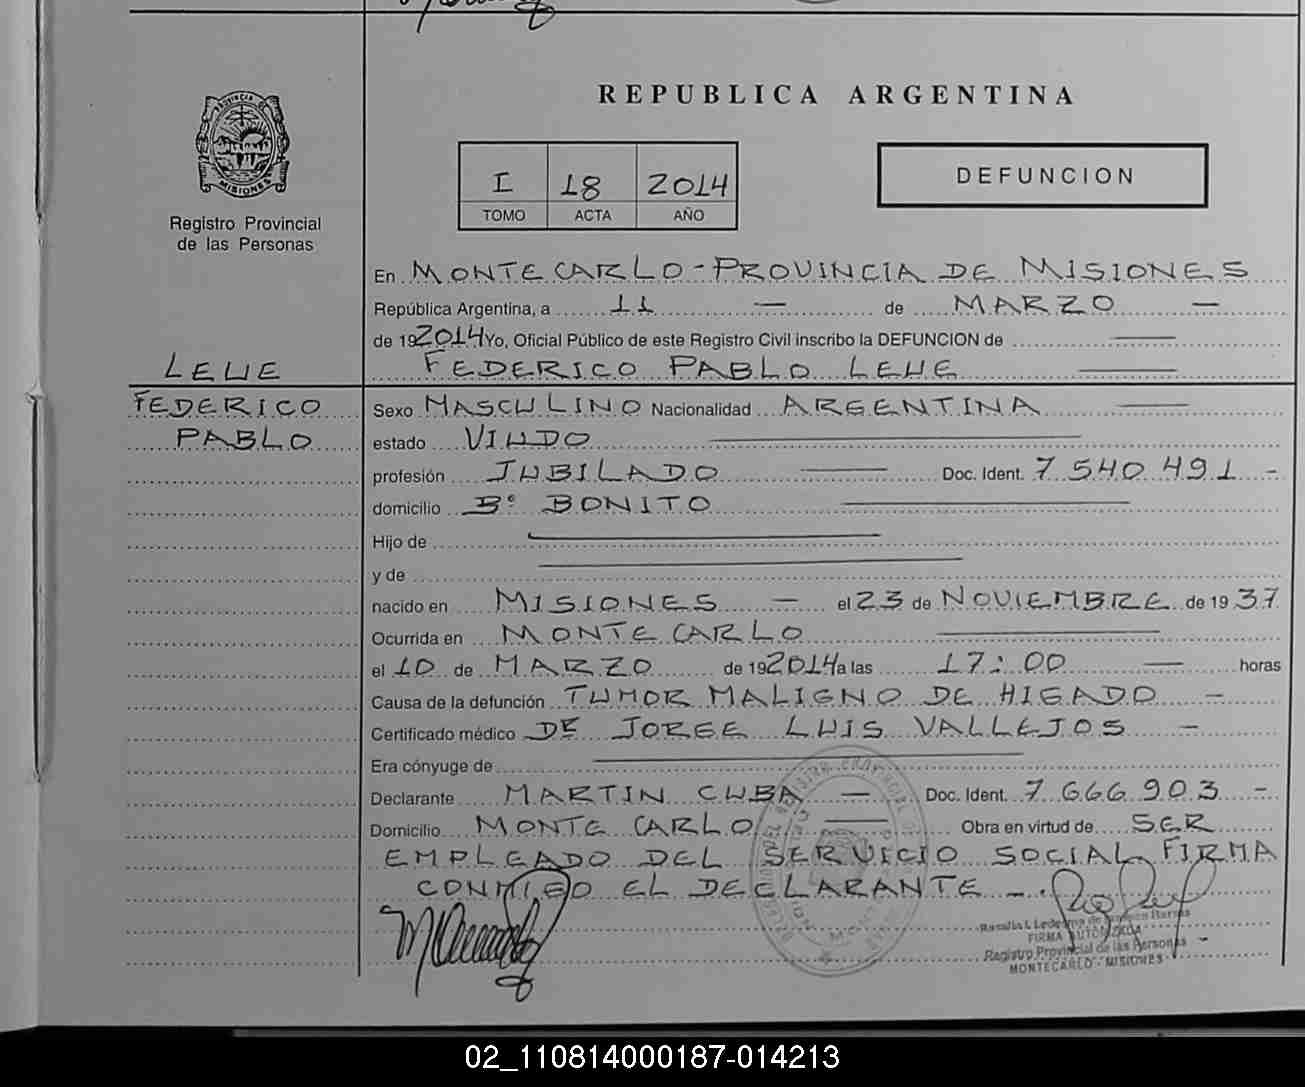 REPUBLICA ARGENTINA
PROVINCIA DE
MISIONES
Registro Provincial
de las Personas
I 18 2014
TOMO ACTA AÑO
DEFUNCION
En MONTECARLO-PROVINCIA DE MISIONES
República Argentina, a 11 — de MARZO —
de 192014 Yo, Oficial Público de este Registro Civil inscribo la DEFUNCION de
FEDERICO PABLO LEUE
LEUE
FEDERICO
PABLO
Sexo MASCULINO Nacionalidad ARGENTINA
estado VIUDO
profesión JUBILADO Doc. Ident. 7 540 491 -
domicilio Bº BONITO
Hijo de
y de
nacido en MISIONES — el 23 de NOVIEMBRE de 19 37
Ocurrida en MONTECARLO
el 10 de MARZO de 192014 a las 17:00 — horas
Causa de la defunción TUMOR MALIGNO DE HIGADO -
Certificado médico DR JORGE LUIS VALLEJOS -
Era cónyuge de
Declarante MARTIN CUBA — Doc. Ident. 7 666 903 -
Domicilio MONTECARLO — Obra en virtud de SER
EMPLEADO DEL SERVICIO SOCIAL, FIRMA
CONMIGO EL DECLARANTE -.
Rosalia I. Ledesma de
FIRMA AUTORIZADA
Registro Provincial de las Personas
MONTECARLO - MISIONES
02_110814000187-014213